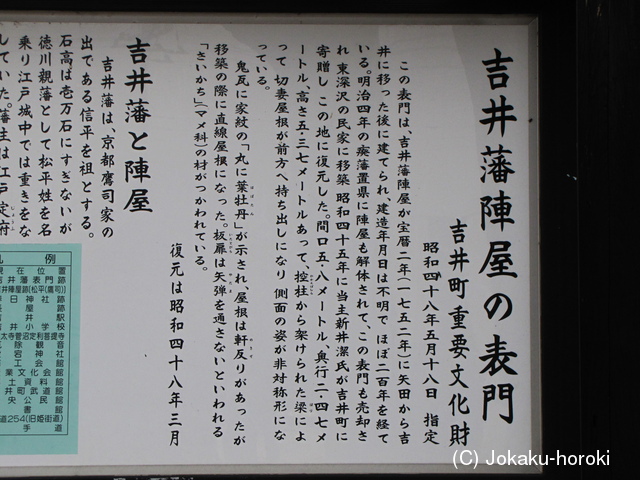 吉井藩陣屋の表門
吉井町重要文化財
昭和四十八年五月十八日 指定
この表門は、吉井藩陣屋が宝暦二年(一七五二年)に矢田から吉
井に移った後に建てられ、建造年月日は不明で ほぼ二百年を経て
いる。明治四年の廃藩置県に陣屋も解体されて、この表門も売却さ
れ 東深沢の民家に移築 昭和四十五年に当主新井潔氏が吉井町に
寄贈し この地に復元した。間口五・八メートル、奥行二・四七メ
ートル、高さ五・三七メートルあって、控柱から架けられた梁によ
って 切妻屋根が前方へ持ち出しになり 側面の姿が非対称形にな
っている。
鬼瓦に家紋の「丸に葉牡丹」が示され、屋根は軒反りがあったが
移築の際に直線屋根になった。板扉は矢弾を通さないといわれる
「さいかち」(マメ科)の材がつかわれている。
復元は昭和四十八年三月
吉井藩と陣屋
吉井藩は、京都鷹司家の
出である信平を祖とする。
石高は壱万石にすぎないが
徳川親藩として松平姓を名
乗り江戸城中では重きをな
していた。藩主は江戸定府
凡例
現在位置
吉井藩表門跡
吉井陣屋跡[松平(鷹司)]
春日神社跡
吉井駅
吉井小学校
観音
神社
工会館
文化会館
土資料館
井町武道館
中央公民館
図書館
道254(旧姫街道)
(C) Jokaku-horoki